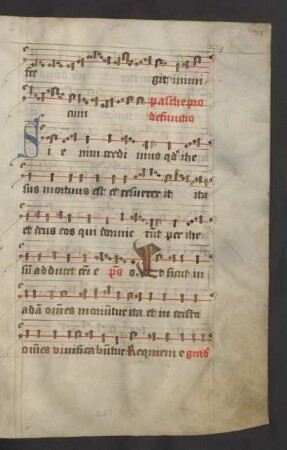 tre git mini
cuit pasche pro
defuncto
Si e nim credi mus qd ihe
sus mortuus est et resurrex it ita
et deus eos qui dormie rūt per ihe
sū adducet cū e o Et sicut in
adā om̄es moriūtur ita et in cristo
om̄es vivificabūtur Requiem e grad